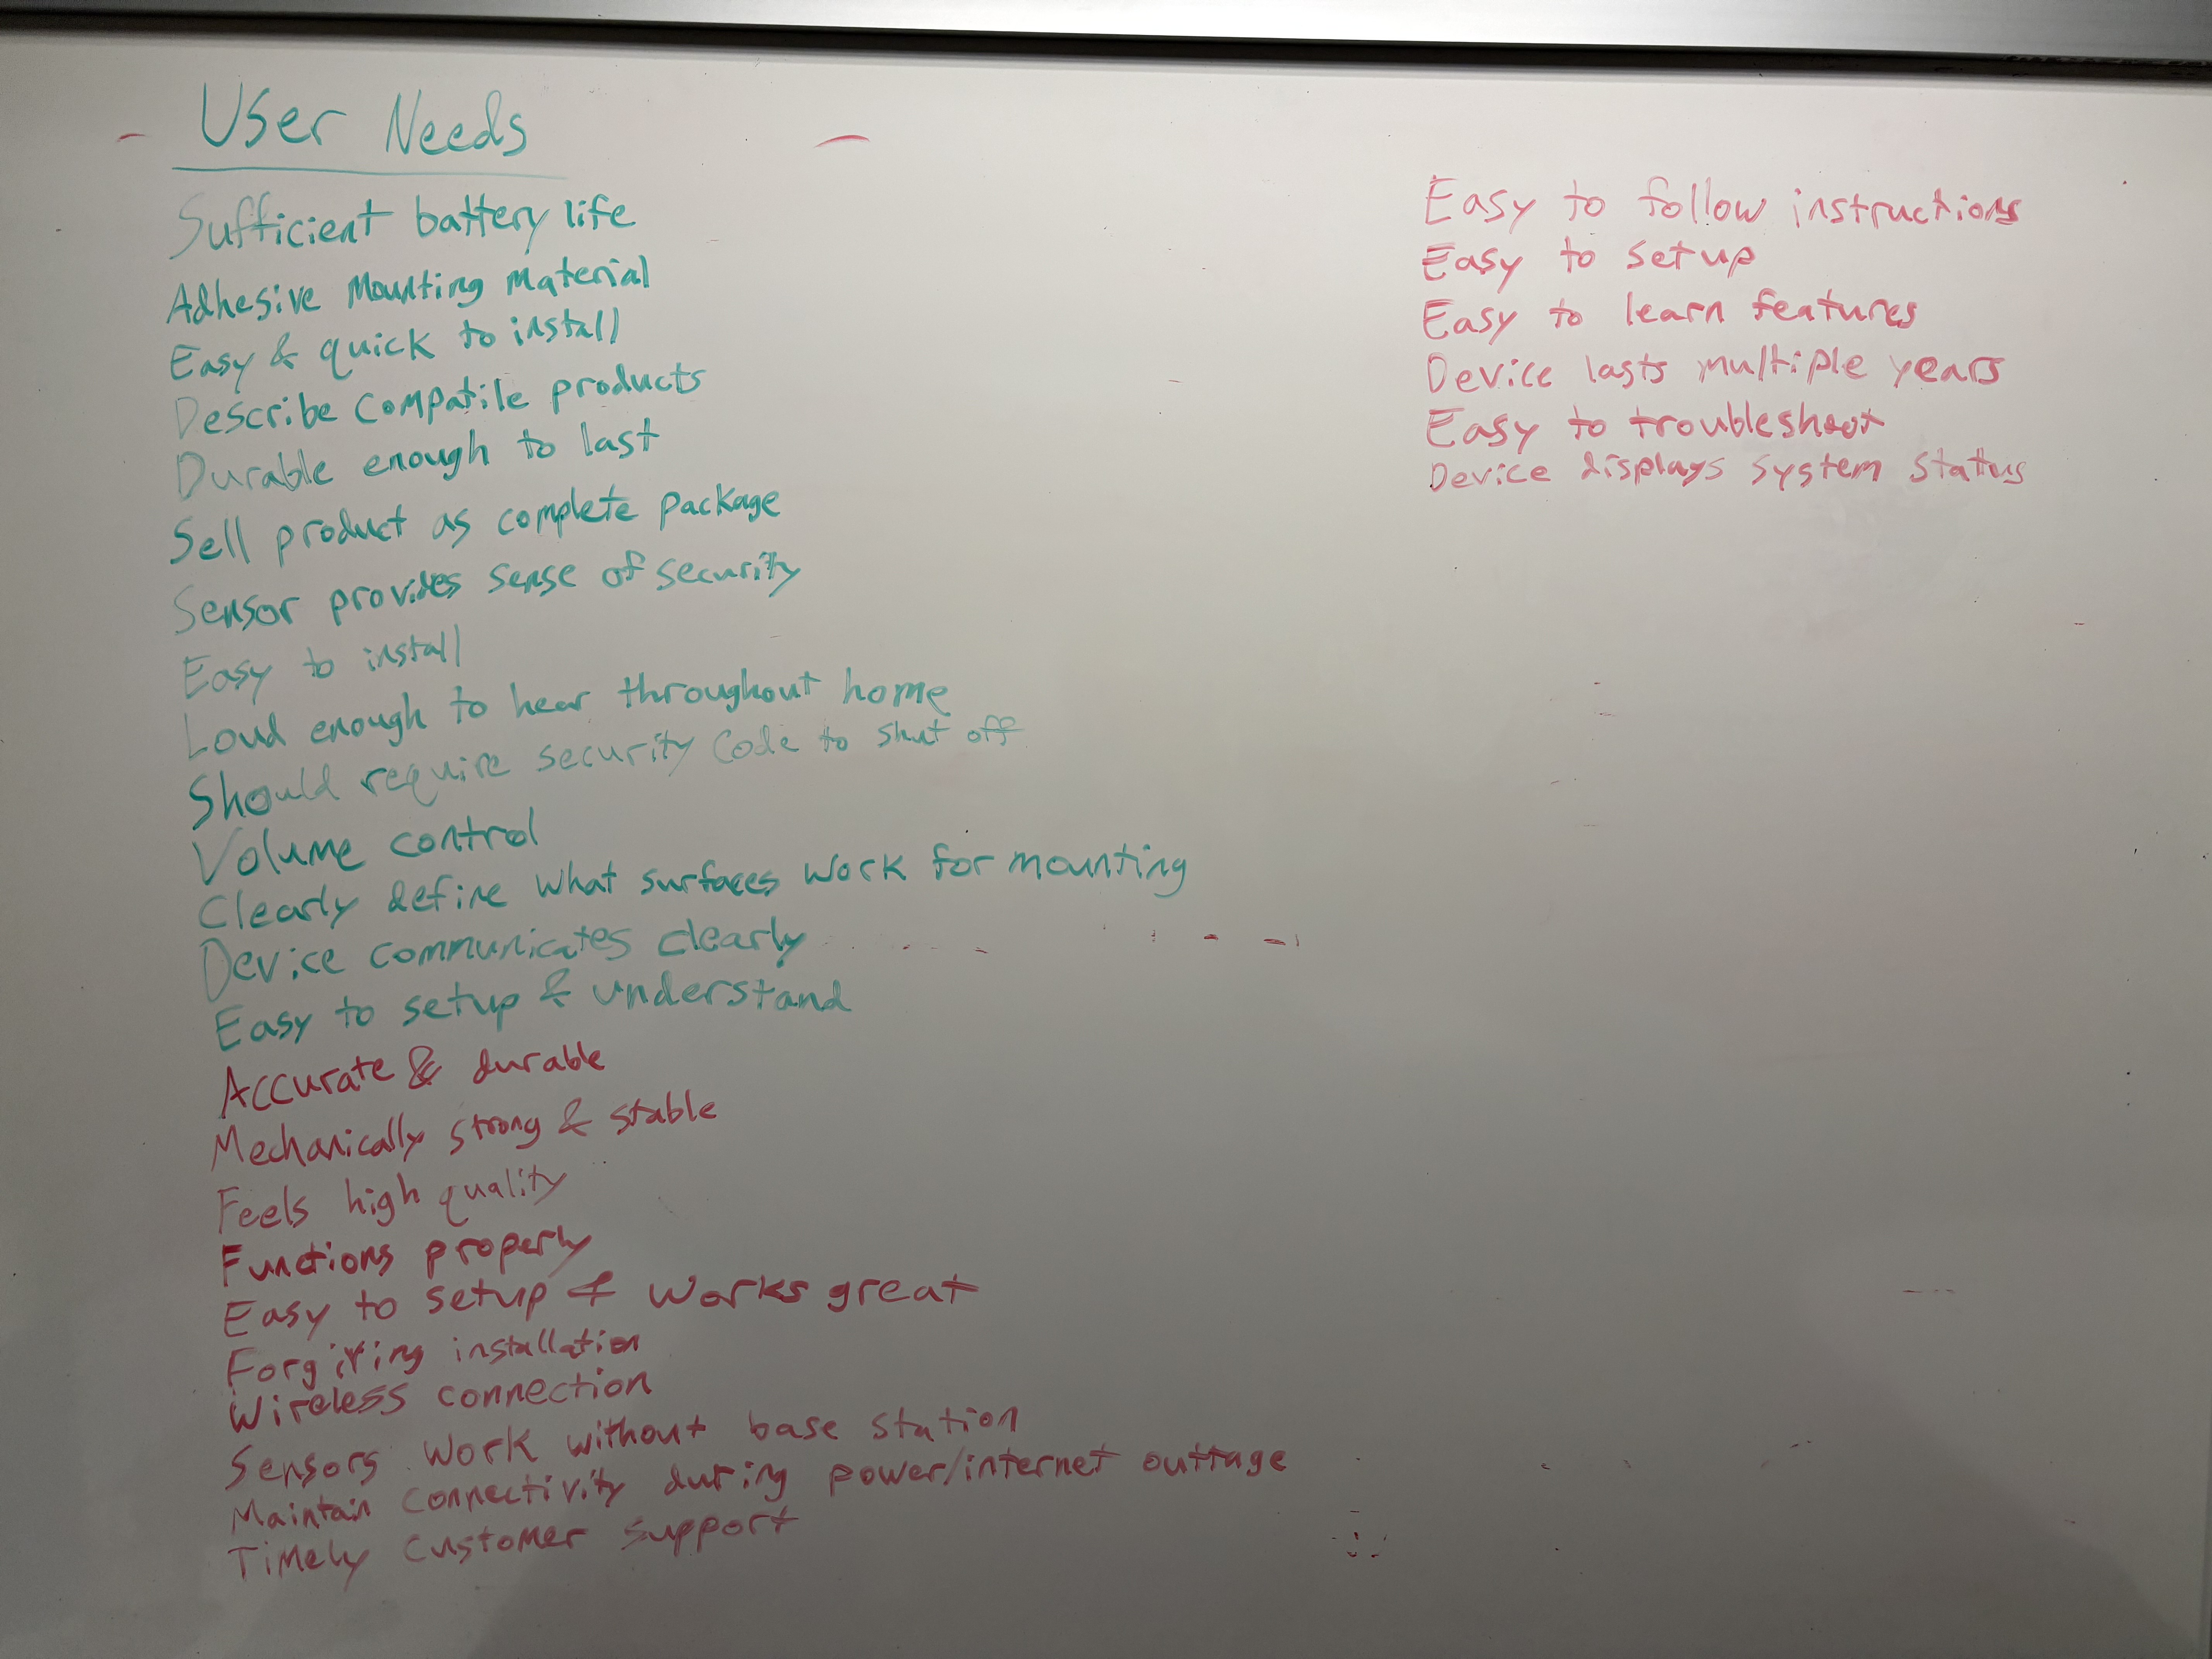 User Needs
Sufficient battery life
Adhesive Mounting Material
Easy & quick to install
Describe compatile products
Durable enough to last
Sell product as complete package
Sensor provides sense of security
Easy to install
Loud enough to hear throughout home
Should require security code to shut off
Volume control
Clearly define what surfaces work for mounting
Device communicates clearly
Easy to setup & understand
Accurate & durable
Mechanically strong & stable
Feels high quality
Functions properly
Easy to setup & works great
Forgiving installation
Wireless connection
Sensors work without base station
Maintain connectivity during power/internet outtage
Timely customer support
Easy to follow instructions
Easy to setup
Easy to learn features
Device lasts multiple years
Easy to troubleshoot
Device displays system status